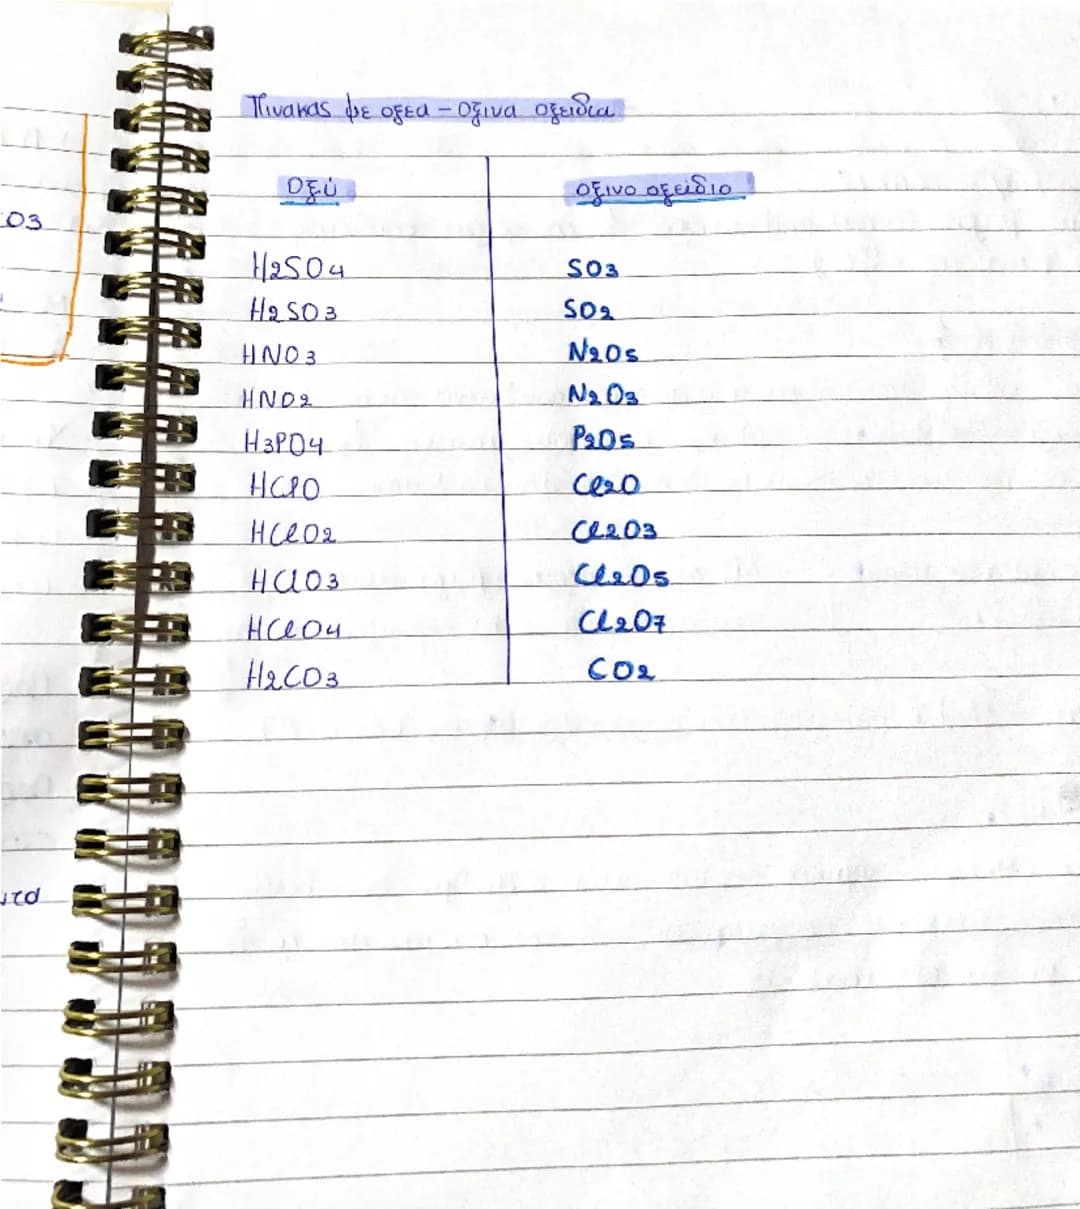 Πινακας με οξεα - Οξινα οξειδια
Οξύ οξινο οξείδιο
H2SO4 SO3
H2SO3 SO2
HNO3 N2O5
HNO2 N2O3
H3PO4 P2O5
HClO Cl2O
HClO2 Cl2O3
HClO3 Cl2O5
HClO4 Cl2O7
H2CO3 CO2